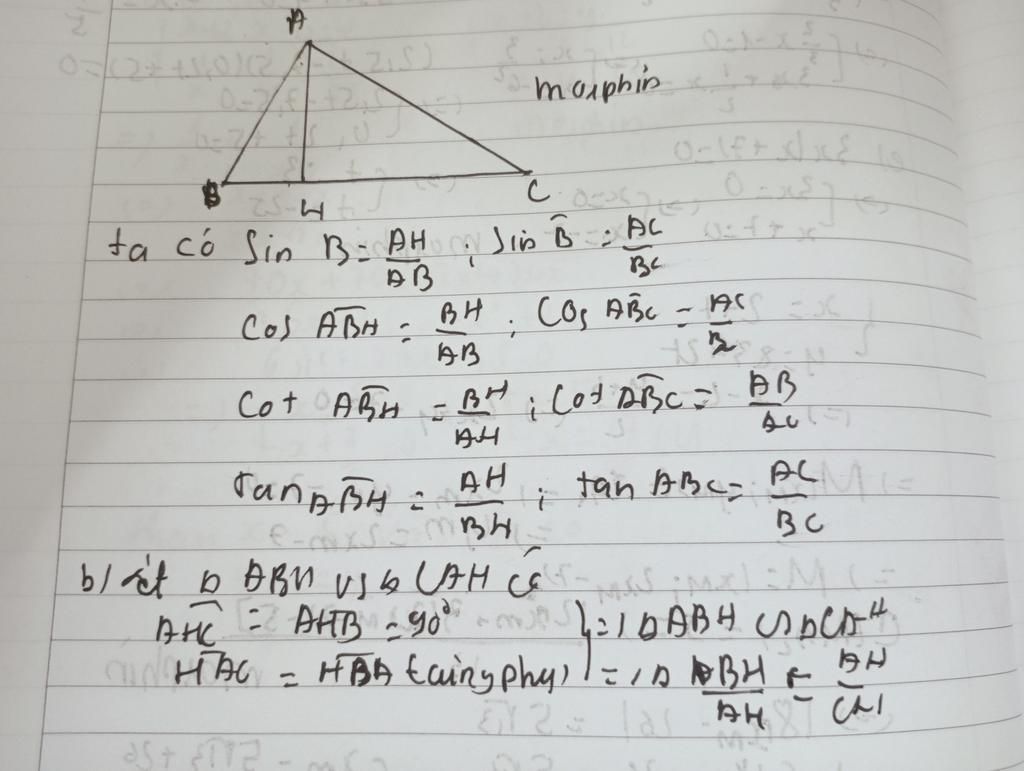 A
morphin
B H C
ta có Sin B = AH/AB ; Sin B̂ = AC/BC
Cos ABH = BH/AB ; Cos ABC = AC/B
Cot ABH = BH/AH ; Cot ABC = AB/AC
Tan ABH = AH/BH ; tan ABC = AC/BC
b) xét Δ ABH vs Δ CAH có
AHC = AHB = 90° => Δ ABH ∽ Δ CAH
HAC = HBA (cùng phụ) => BH/AH = AH/CH